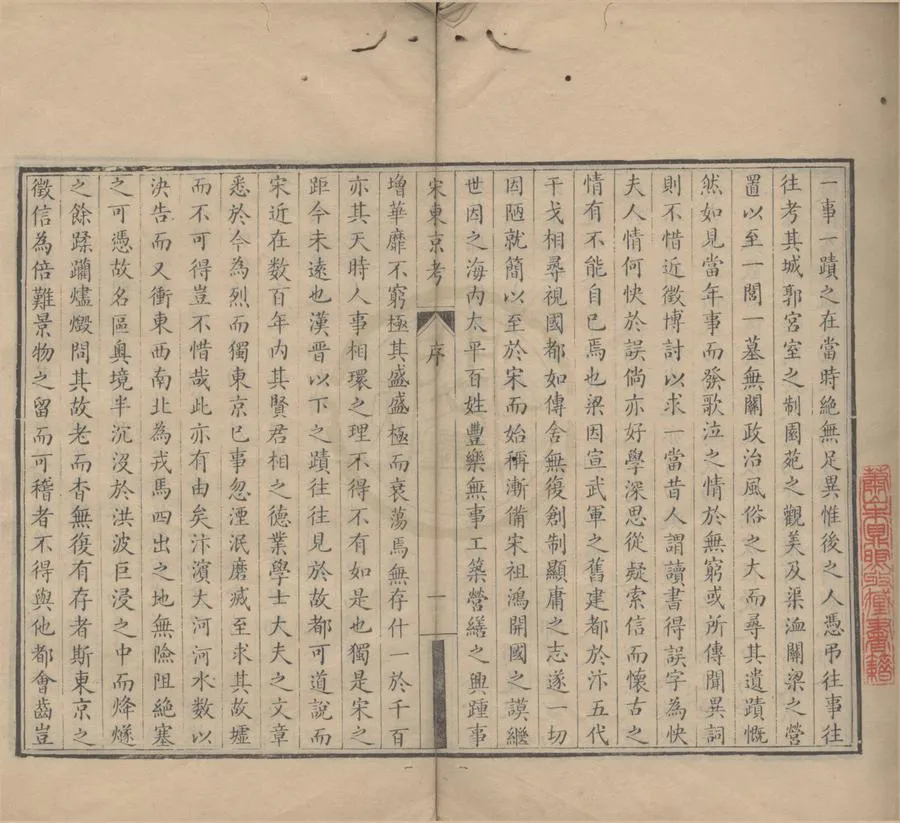 一事一蹟之在當時絶無足異惟後之人憑弔往事往
往考其城郭宮室之制園苑之觀美及渠洫關梁之營
置以至一閭一墓無關政治風俗之大而尋其遺蹟慨
然如見當年事而發歌泣之情於無窮或所傳聞異詞
則不惜近徵博討以求一當昔人謂讀書得誤字為快
夫人情何快於誤倘亦好學深思從疑索信而懷古之
情有不能自已焉也梁因宣武軍之舊建都於汴五代
干戈相尋視國都如傳舍無復創制顯庸之志遂一切
因陋就簡以至於宋而始稱漸備宋祖鴻開國之謨繼
世因之海內太平百姓豐樂無事工築營繕之興踵事
宋東京考
序
一
增華靡不窮極其盛盛極而衰蕩焉無存什一於千百
亦其天時人事相環之理不得不有如是也獨是宋之
距今未遠也漢晉以下之蹟往往見於故都可道說而
宋近在數百年內其賢君相之德業學士大夫之文章
悉於今為烈而獨東京已事忽湮泯磨烕至求其故墟
而不可得豈不惜哉此亦有由矣汴濱大河河水數以
決告而又衝東西南北為戎馬四出之地無險阻絶塞
之可憑故名區奧境半沉沒於洪波巨浸之中而烽燧
之餘蹂躪燼燬問其故老而杳無復有存者斯東京之
徵信為倍難景物之留而可稽者不得與他都會齒豈